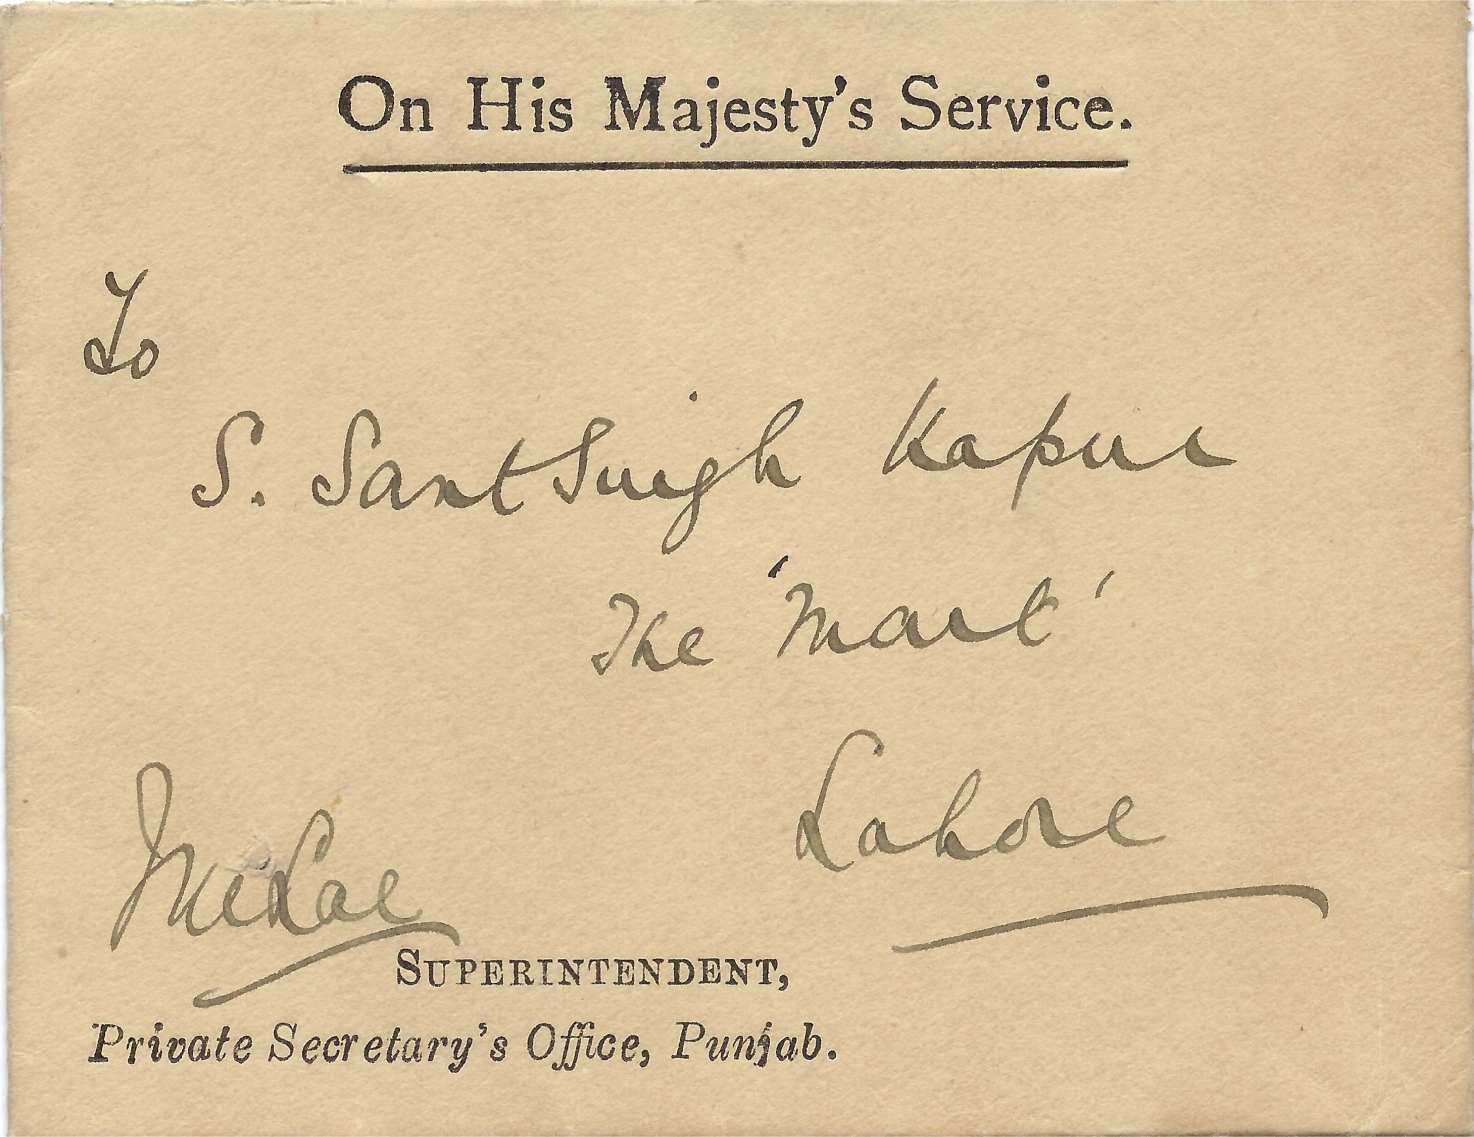 On His Majesty's Service.
To
S. Sant Singh Kapur
The 'Mart'
Lahore
SUPERINTENDENT,
Private Secretary's Office, Punjab.